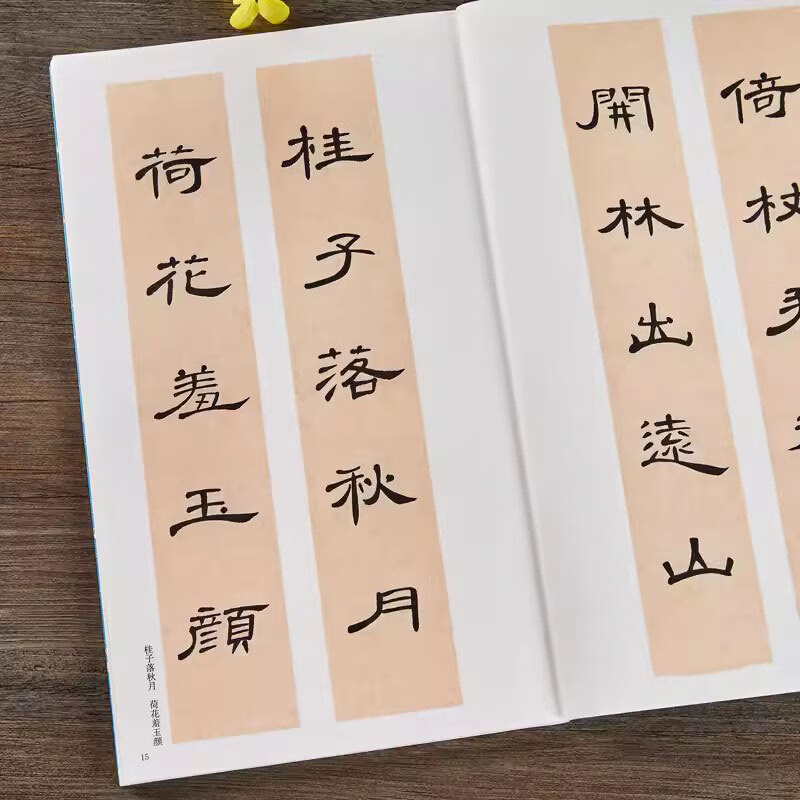 桂子落秋月
荷花羞玉顔
桂子落秋月 荷花羞玉颜
15
倚杖
開林出遠山